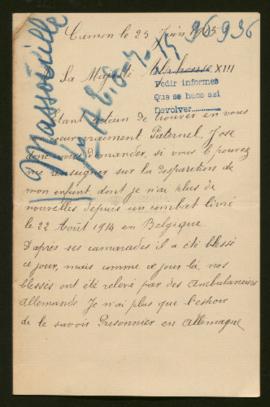 Massoville
36936
Cremon le 25 Juin 1915
Sa Majesté Alphonse XIII
Pedir informes
Que se hace asi
Devolver
Etant de trouver en vous
Paternel, J'ose
vous demander, si vous le pouvez
me renseigner sur la disparition de
mon enfant dont je n'ai plus de
nouvelles depuis un combat livré
le 22 Août 1914 en Belgique
D'après ses camarades il a été blessé
ce jour, mais comme ce jour là nos
blessés ont été relevé par des Ambulanciers
Allemands Je n'ai plus que l'espoir
de le savoir Prisonnier en Allemagne